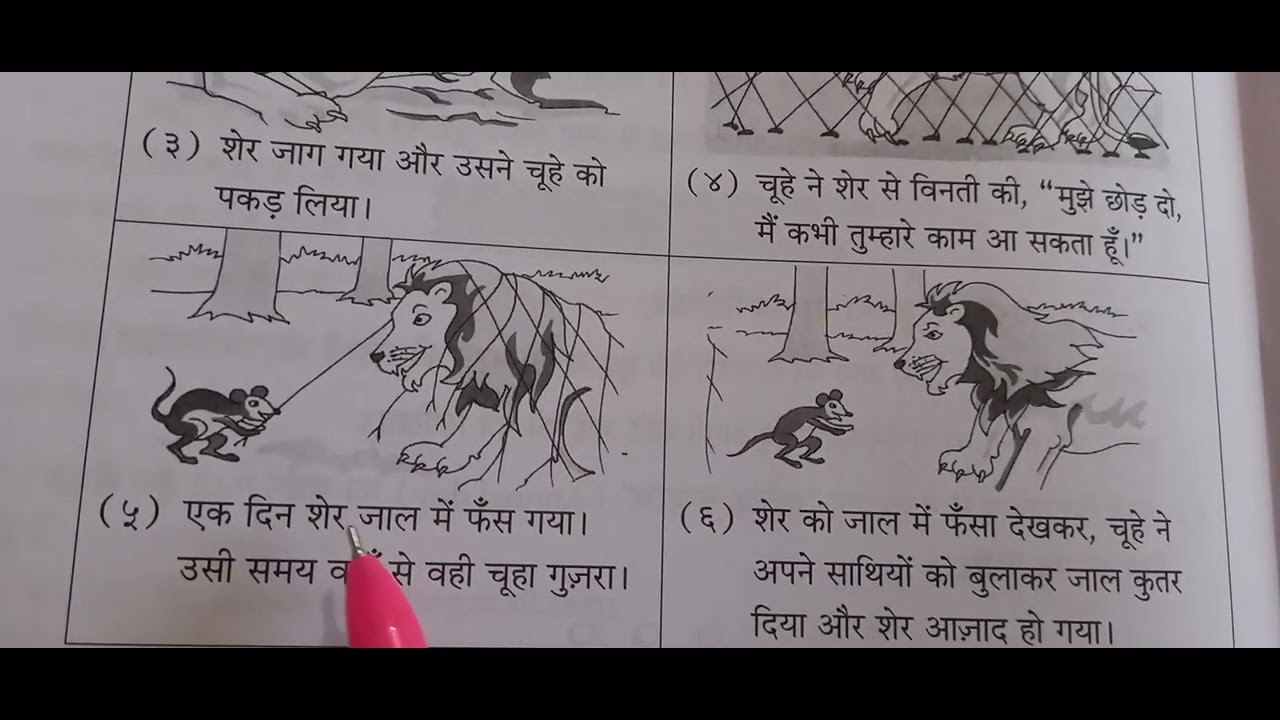 (३) शेर जाग गया और उसने चूहे को
पकड़ लिया।
(४) चूहे ने शेर से विनती की, “मुझे छोड़ दो,
मैं कभी तुम्हारे काम आ सकता हूँ।”
(५) एक दिन शेर जाल में फँस गया।
उसी समय से वही चूहा गुज़रा।
(६) शेर को जाल में फँसा देखकर, चूहे ने
अपने साथियों को बुलाकर जाल कुतर
दिया और शेर आज़ाद हो गया।